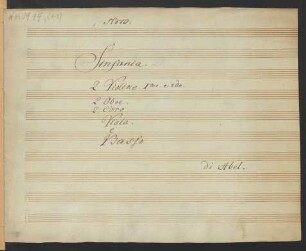 Nro.
Sinfonia.
2 Violino 1mo e 2do
2 Oboe
2 Corn
Viola
e
Basso
di Abel.